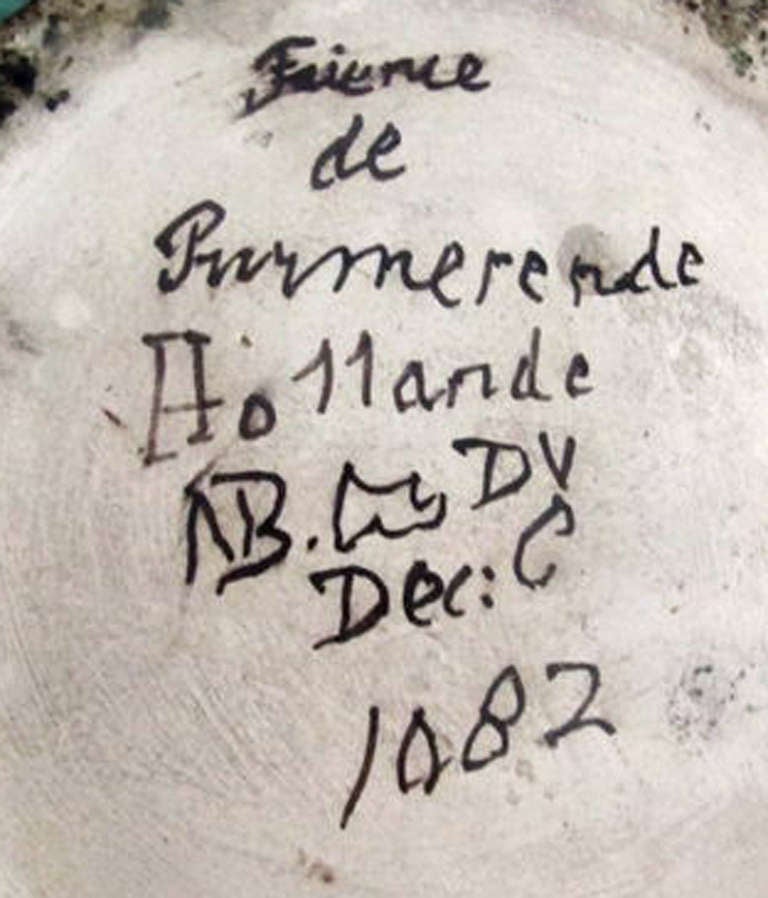 Faience
de
Purmerende
Hollande
NB. DV
Dec: C
1082